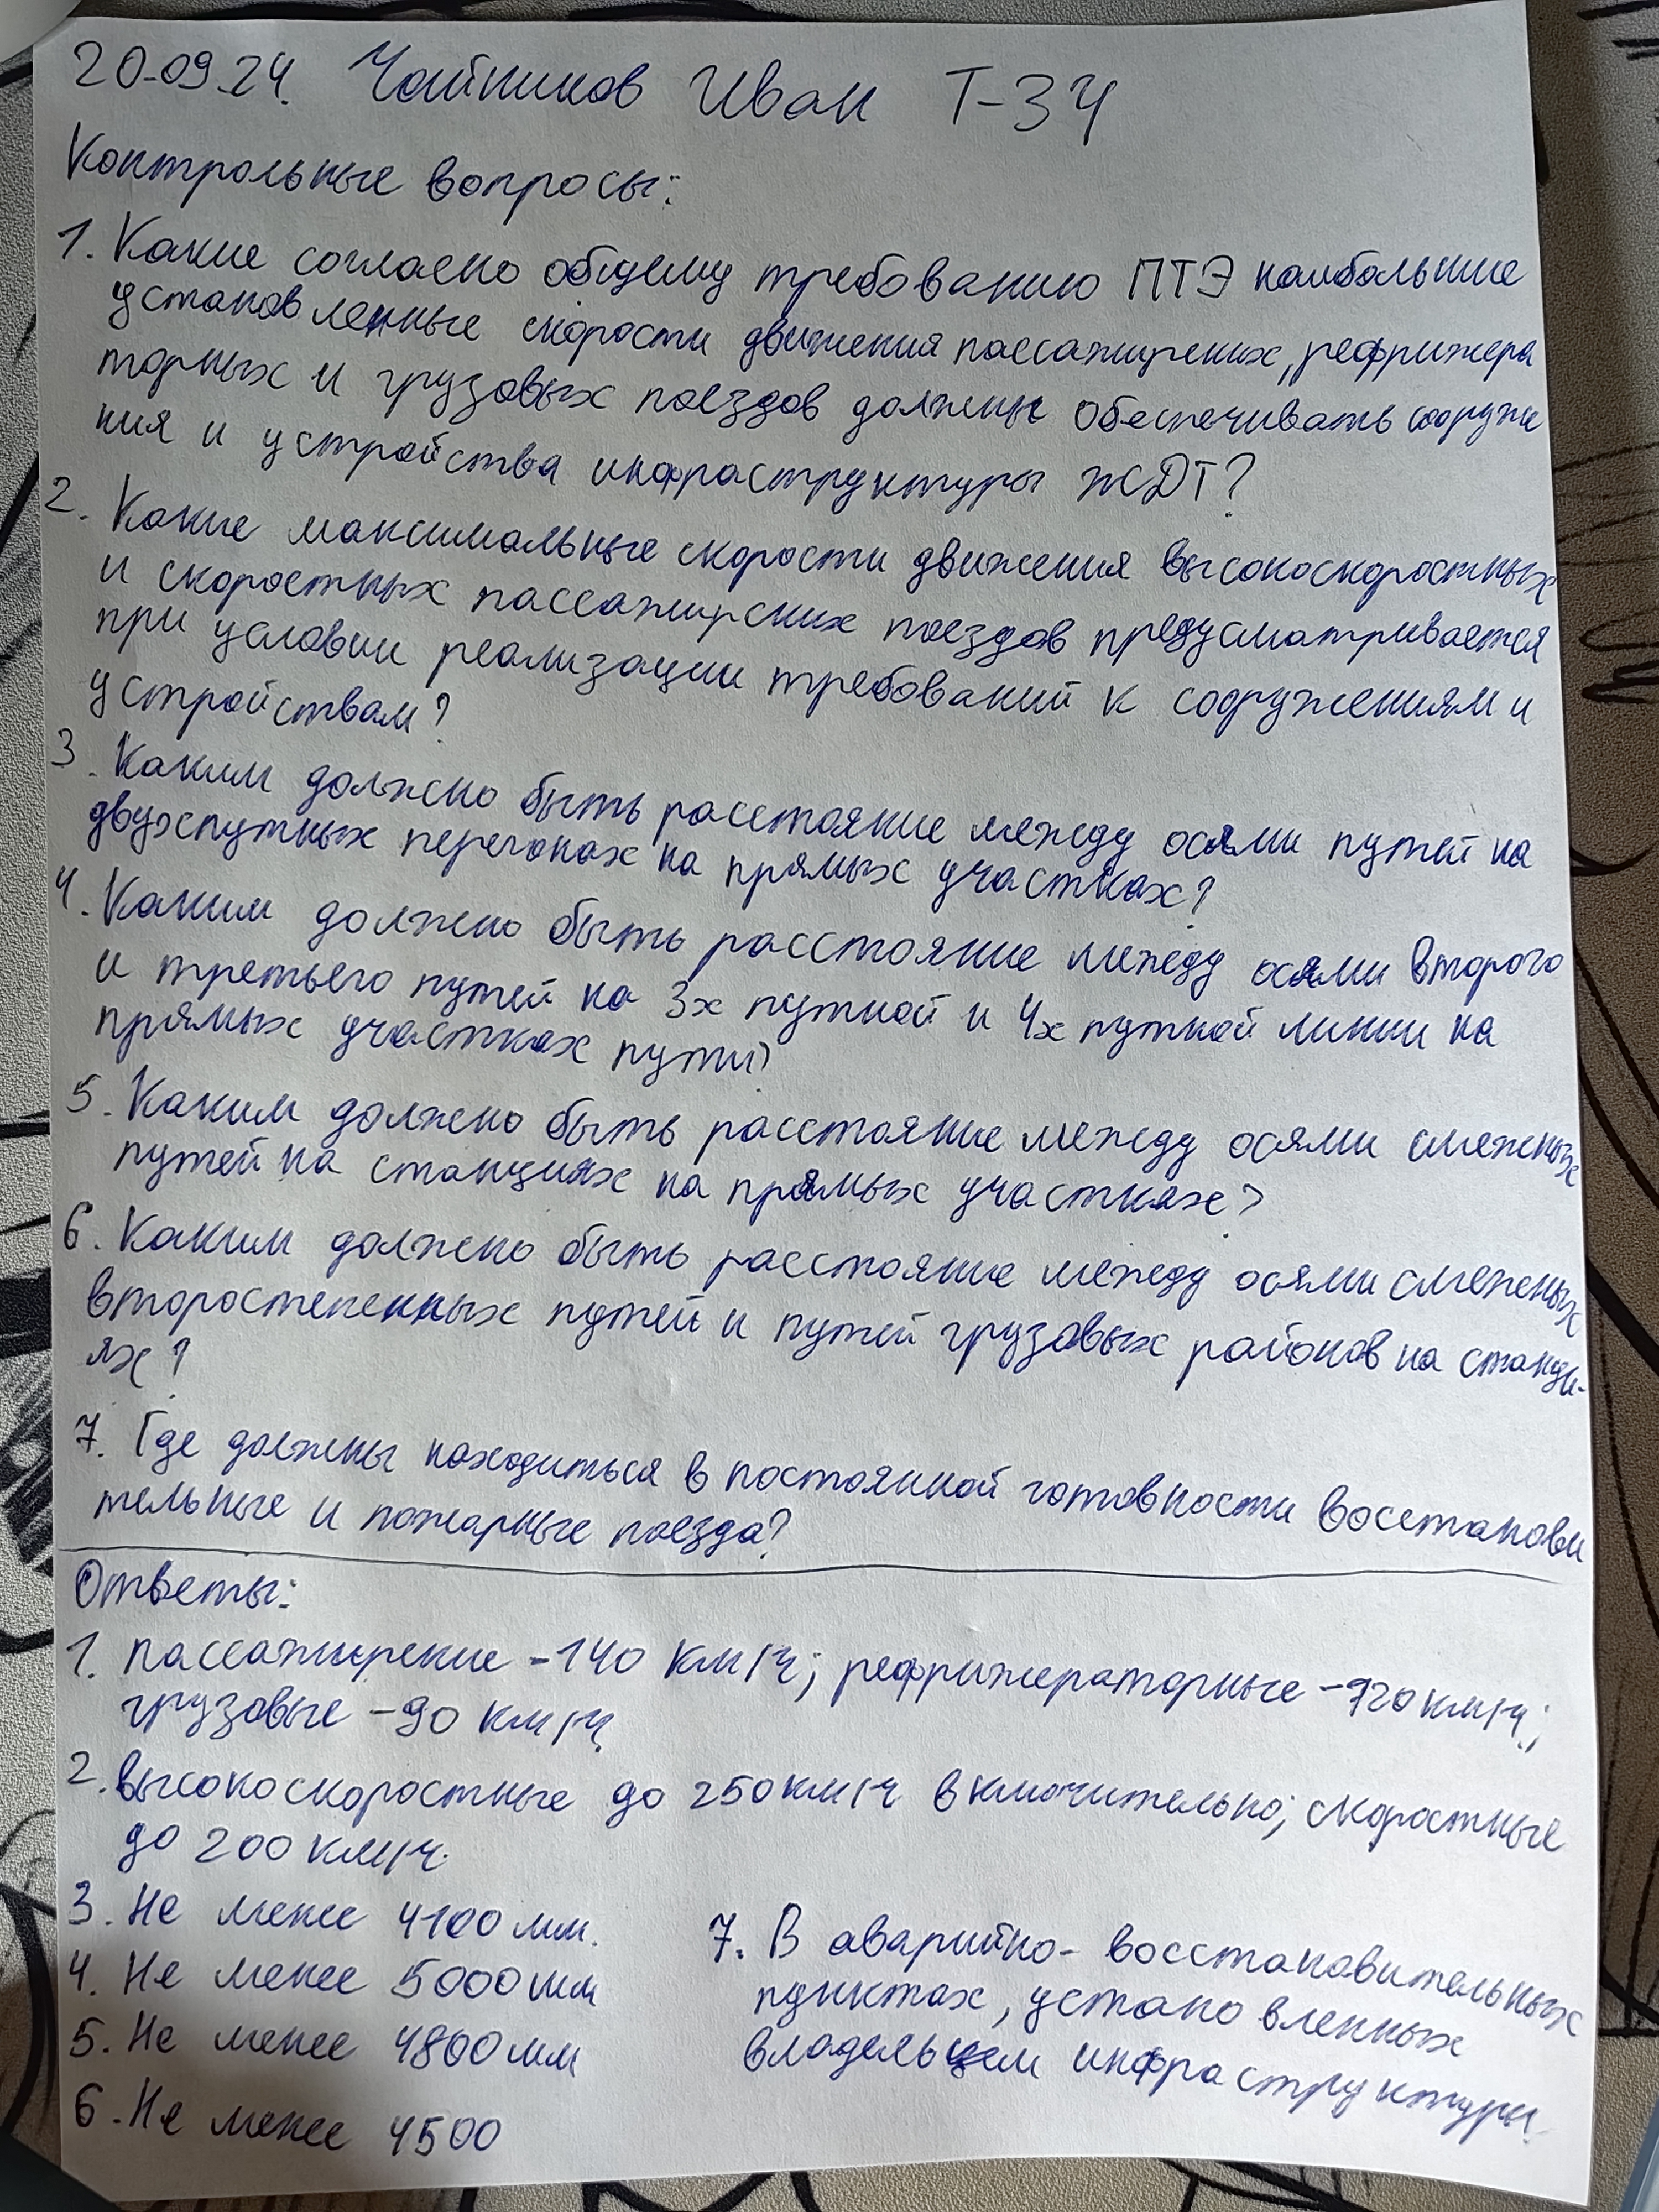 20.09.24. Чайников Иван Т-34
Контрольные вопросы:
1. Какие согласно общему требованию ПТЭ наибольшие
установленные скорости движения пассажирских, рефрижера
торных и грузовых поездов должны обеспечивать сооруже
ния и устройства инфраструктуры ЖДТ?
2. Какие максимальные скорости движения высокоскоростных
и скоростных пассажирских поездов предусматривается
при условии реализации требований к сооружениям и
устройствам?
3. Каким должно быть расстояние между осями путей на
двухпутных перегонах на прямых участках?
4. Каким должно быть расстояние между осями второго
и третьего путей на 3х путной и 4х путной линии на
прямых участках пути?
5. Каким должно быть расстояние между осями смежных
путей на станциях на прямых участках?
6. Каким должно быть расстояние между осями смежных
второстепенных путей и путей грузовых районов на станци-
ях?
7. Где должны находиться в постоянной готовности восстанови
тельные и пожарные поезда?
Ответы:
1. Пассажирские - 140 км/ч; рефрижераторные - 120 км/ч;
грузовые - 90 км/ч
2. высокоскоростные до 250 км/ч включительно; скоростные
до 200 км/ч.
3. Не менее 4100 мм.
4. Не менее 5000 мм
5. Не менее 4800 мм
6. Не менее 4500
7. В аварийно-восстановительных
пунктах, установленных
владельцем инфраструктуры.